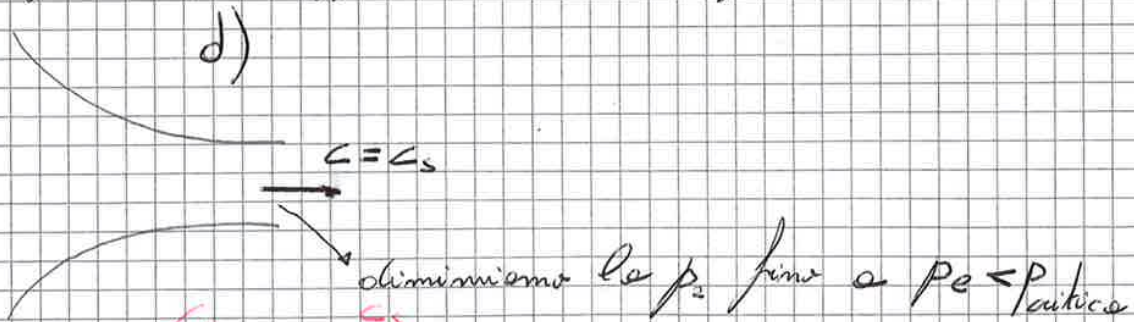 d)
c = cs
diminuiamo la p2 fino a pe < pcritica
cs